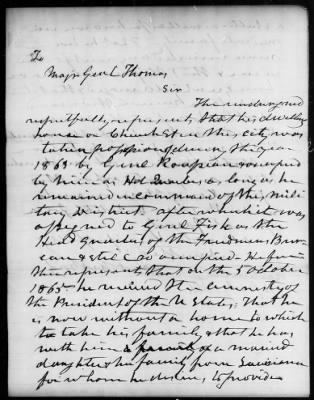 To
Majr Genl Thomas
Sir
The undersigned
respectfully represents, that his dwelling
house on Church St in this city, was
taken possession of during the year
1863 by Genl Rousseau & occupied
by him as Hd Quarters as long as he
remained in command of this, mili
tary District. after which it was
assigned to Genl Fisk as the
Head Quarters of the Freedmens Bur
eau & still is so occupied. He further
represents, that on the 5 October
1865 he received the amnesty of
the President of the U States, that he
is now without a home to which
to take his family, & that he has
with him a married
daughter & her family from Louisiana
for whom he desires, to provide